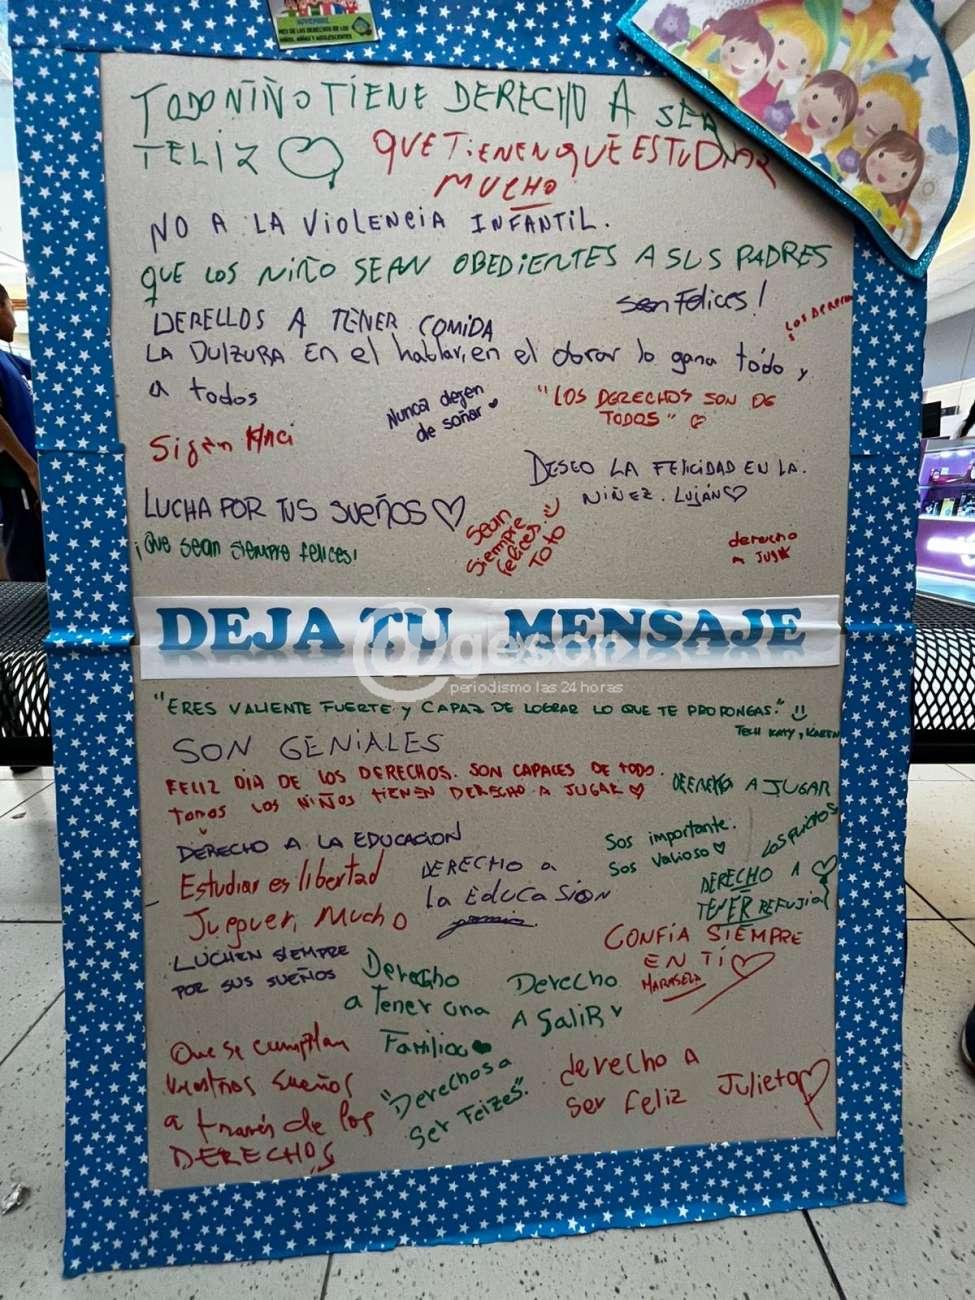 NOVIEMBRE
MES DE LOS DERECHOS DE LOS
NIÑOS, NIÑAS Y ADOLESCENTES
TODO NIÑO TIENE DERECHO A SER
FELIZ
QUE TIENEN QUE ESTUDIAR
MUCHO
NO A LA VIOLENCIA INFANTIL.
QUE LOS NIÑO SEAN OBEDIENTES A SUS PADRES
Sean Felices!
LOS DERECHO
DERELLOS A TENER COMIDA
LA DULZURA En el hablar, en el obrar lo gana todo y
a todos
Nunca dejen
de soñar
"LOS DERECHOS SON DE
TODOS"
Sigan
DESEO LA FELICIDAD EN LA
NIÑEZ. LUJÁN
LUCHA POR TUS SUEÑOS
Sean
Siempre
Felices
TOTO
¡Que sean siempre felices!
derecho
A
DEJA TU MENSAJE
@gesor
periodismo las 24 horas
"ERES VALIENTE FUERTE y CAPAZ DE LOGRAR LO QUE TE PROPONGAS."
TECH KATY, KAREN
SON GENIALES
FELIZ DIA DE LOS DERECHOS. SON CAPACES DE TODO.
TODOS LOS NIÑOS TIENEN DERECHO A JUGAR
DERECHO A JUGAR
DERECHO A LA EDUCACION
Sos importante.
Sos valioso
Estudiar es libertad
DERECHO a
la EducaSion
DERECHO A
TENER REFUJIO
Jueguen, Mucho
CONFÍA SIEMPRE
EN TÍ
LUCHEN SIEMPRE
POR SUS SUEÑOS
Derecho
a Tener una
Familia
Derecho
A SaliR
Que se cumplan
vuestros sueños
a través de los
DERECHOS
"Derechos a
Ser Feizes".
derecho A
ser Feliz
Julieta